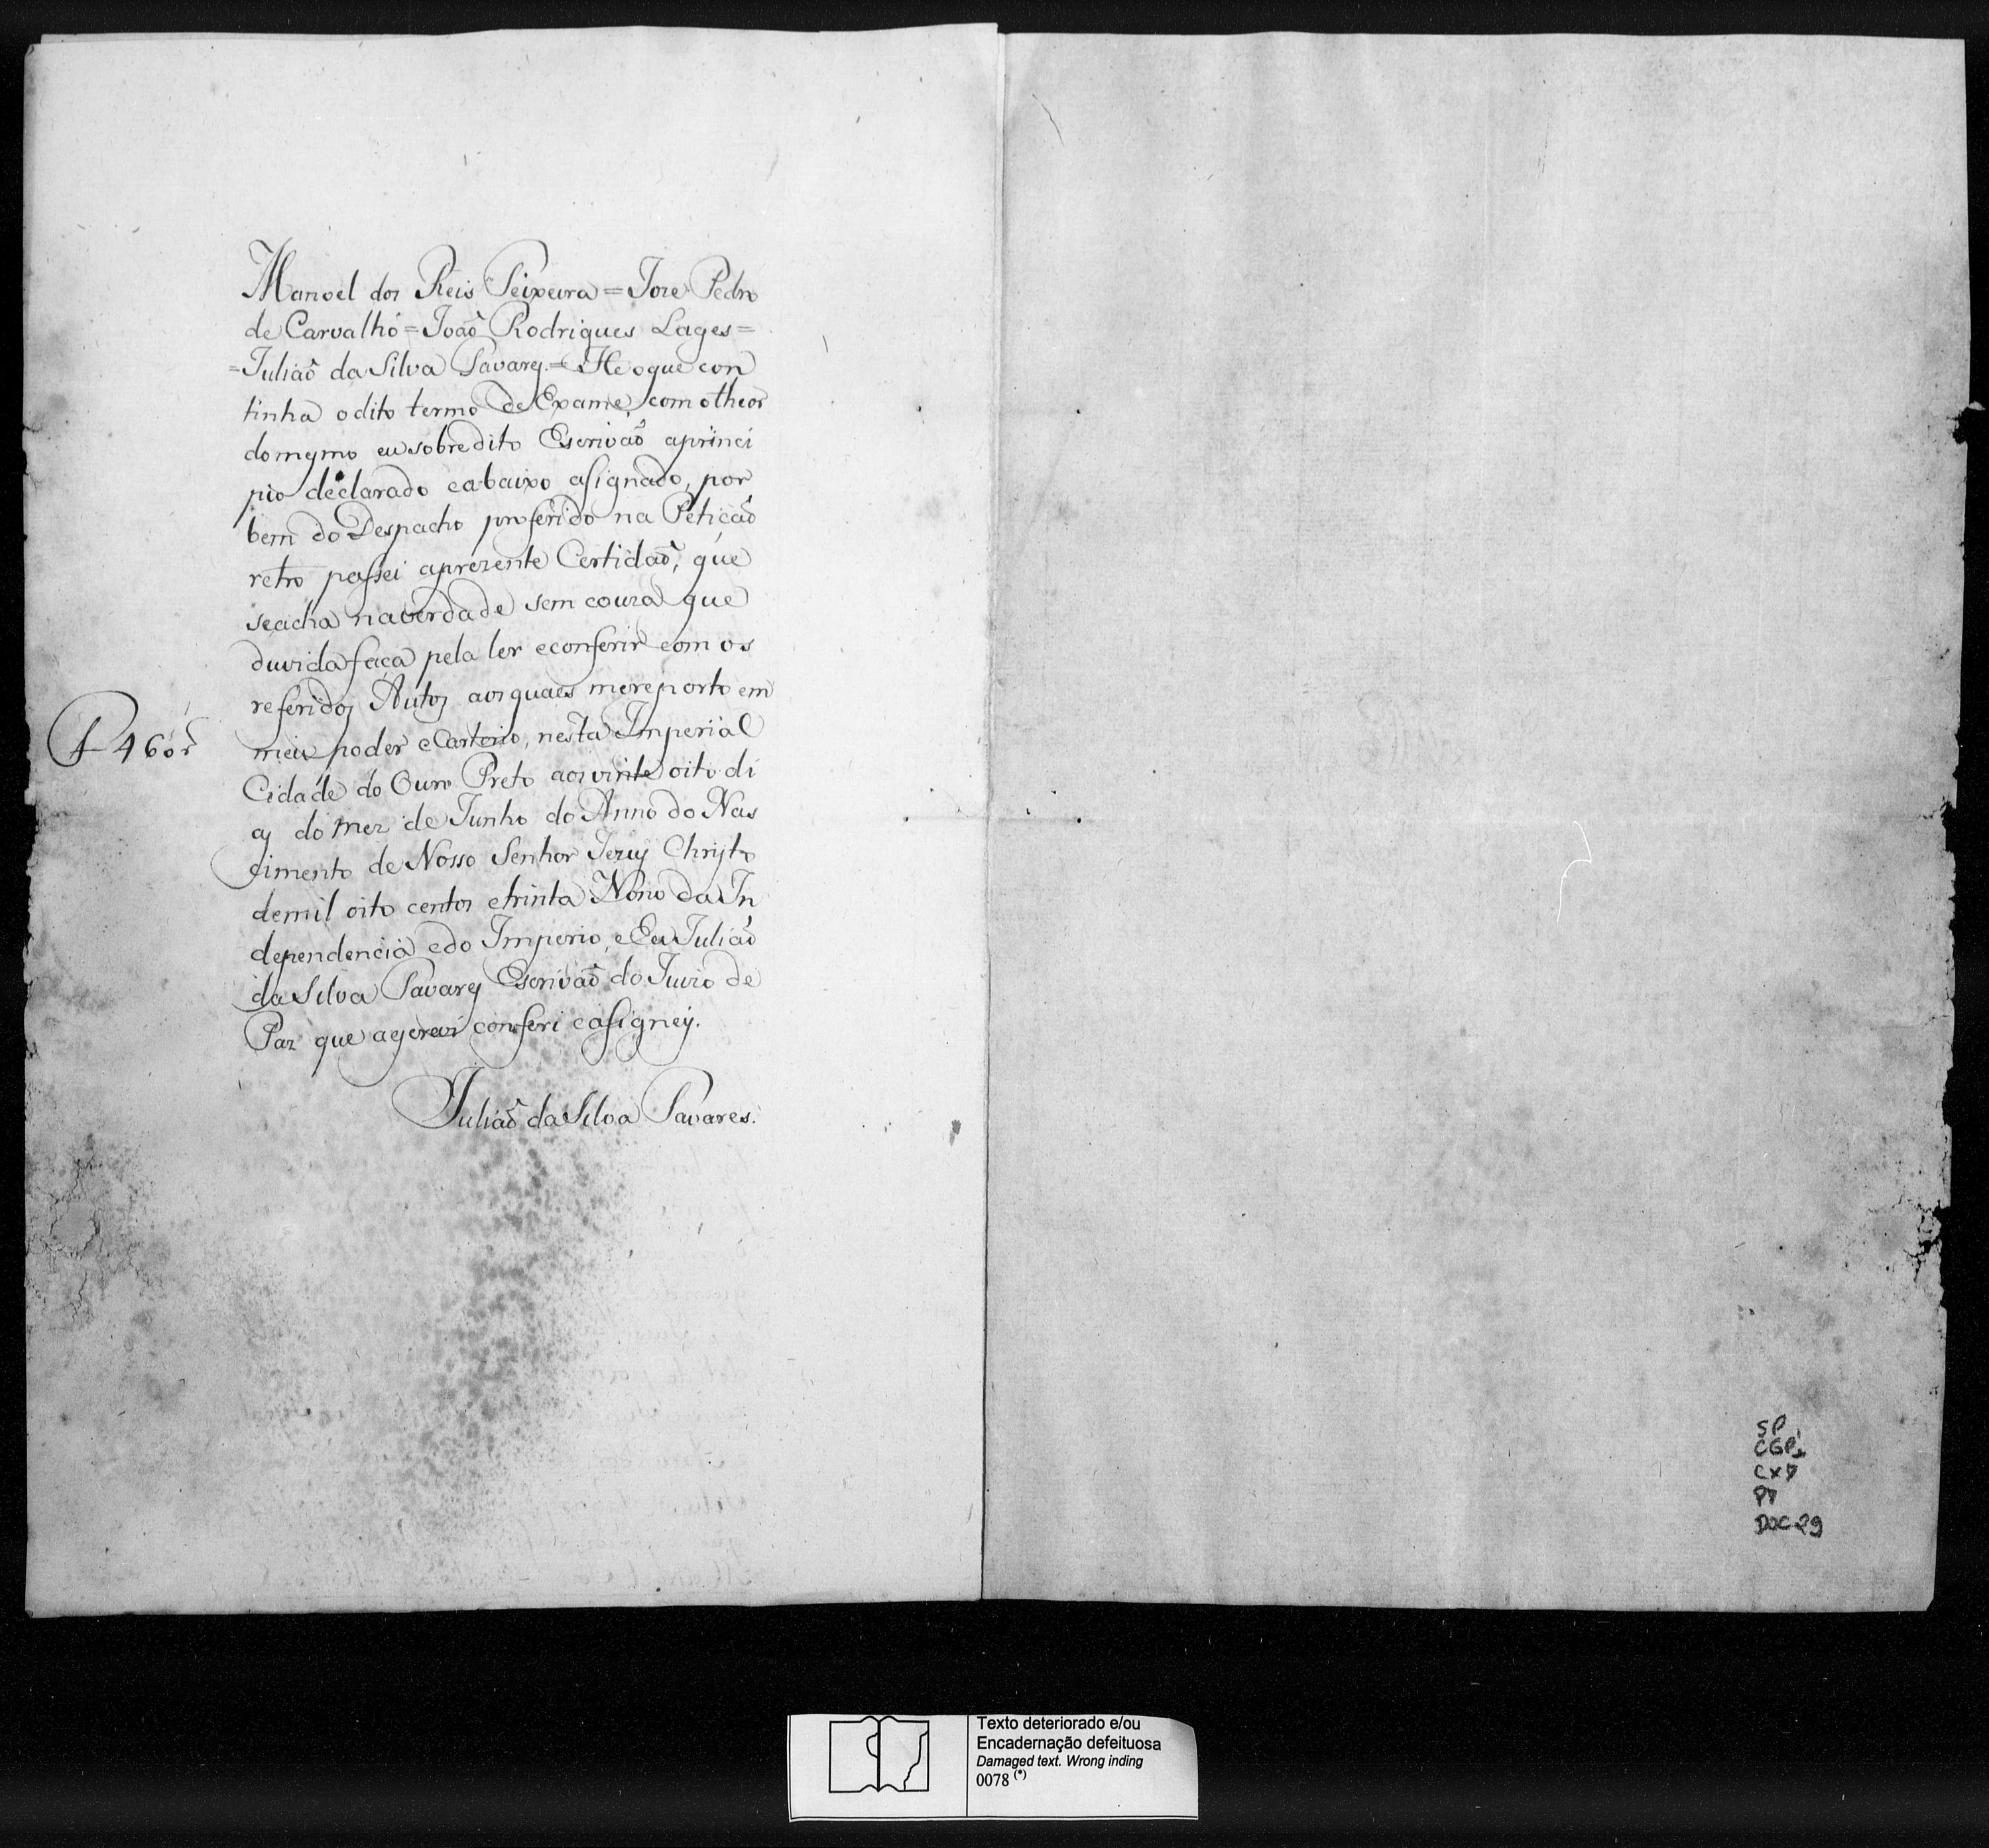 Manoel dos Reis Teixeira = Joze Pedro
de Carvalho = João Rodrigues Lages =
= Julião da Silva Tavarez. = He oque con
tinha odito termo de Exame, com otheor
domesmo eu sobredito Escrivão aprinci
pio declarado eabaixo asignado, por
bem do Despacho proferido na Petição
retro passei aprezente Certidão, que
seacha naverdade sem couza que
duvida faça pela ler econferir com os
referidos Autos aos quaes mereporto em
meu poder eCartorio, nesta Imperial
Cidade do Ouro Preto aos vinte oito di
as do mez de Junho do Anno do Nas
cimento de Nosso Senhor Jezus Christo
demil oito centos etrinta Nono da In
dependencia edo Imperio, eEu Julião
da Silva Tavares Escrivão do Juizo de
Paz que aescrevi conferi easigney.
Julião da Silva Tavares.
460 r
SP
CX7
P1
DOC 29
Texto deteriorado e/ou
Encadernação defeituosa
Damaged text. Wrong inding
0078 (*)